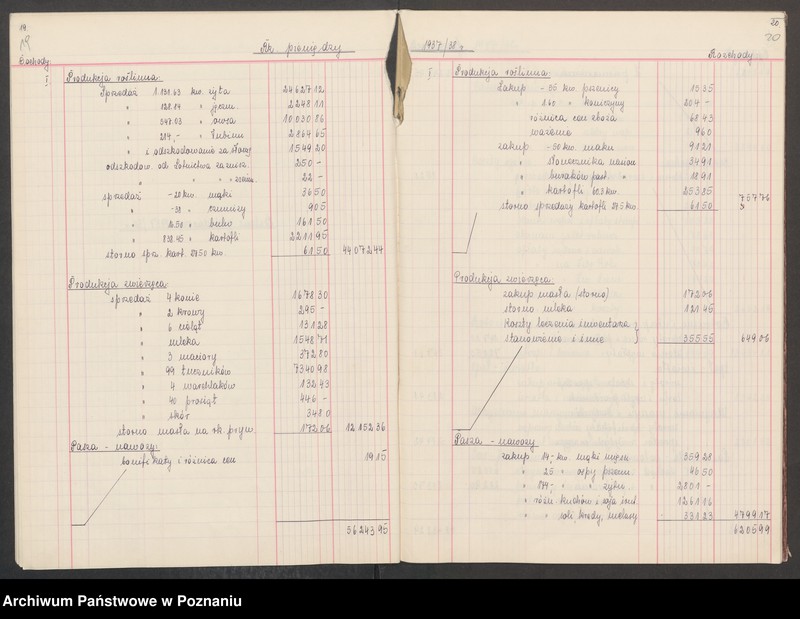 19.
19
Rk pieniędzy
Dochody
I Produkcja roślinna:
Sprzedaż 1.138.63 kw. żyta 24627 12
" 128.14 " jęczm. 2248 11
" 547.03 " owsa 10030 86
" 214,- " łubinu 2864 65
" i odszkodowanie za słomę 1549 20
odszkodow. od Lotnictwa 250 -
" " " 22 -
sprzedaż -20 kw. mąki 36 50
" -38 " 9 05
" 6.50 " 161 50
" 838.45 " kartofli 2211 95
storno spr. kart. 2450 kw. 61 50 44072 44
Produkcja zwierzęca:
sprzedaż 4 konie 1678 30
" 2 krowy 295 -
" 6 cieląt 131 28
" mleka 1548 71
" 3 maciory 372 80
" 99 tuczników 7340 98
" 4 warchlaków 132 43
" 40 prosiąt 446 -
" skór 34 80
storno masła na rk. pryw. 172 06 12152 36
Pasza - nawozy:
bonifikaty i różnica cen 19 15
56243 95
20
20
1937/38 r.
Rozchody
I Produkcja roślinna:
Zakup -55 kw. pszenicy 15 35
" 1.60 " koniczyny 204 -
różnica cen zboża 68 43
ważenie 9 60
zakup -50 kw. maku 91 21
" słonecznika nasion 34 91
" buraków past. " 18 91
" kartofli 60.3 kw. 253 85
storno sprzedaży kartofli 24.5 kw. 61 50 757 76
Produkcja zwierzęca:
zakup masła (storno) 172 06
storno mleka 121 45
Koszty leczenia inwentarza }
stanowienie i inne } 355 55 649 06
Pasza - nawozy
zakup 14,- kw. mąki mięsn. 359 28
" 25 " ospy pszenn. 46 50
" 174,- " " żytn. 2801 -
" różn. kuchów i soja śrut. 1261 16
" " soli, kredy, melasy 331 23 4799 17
6205 99
Archiwum Państwowe w Poznaniu